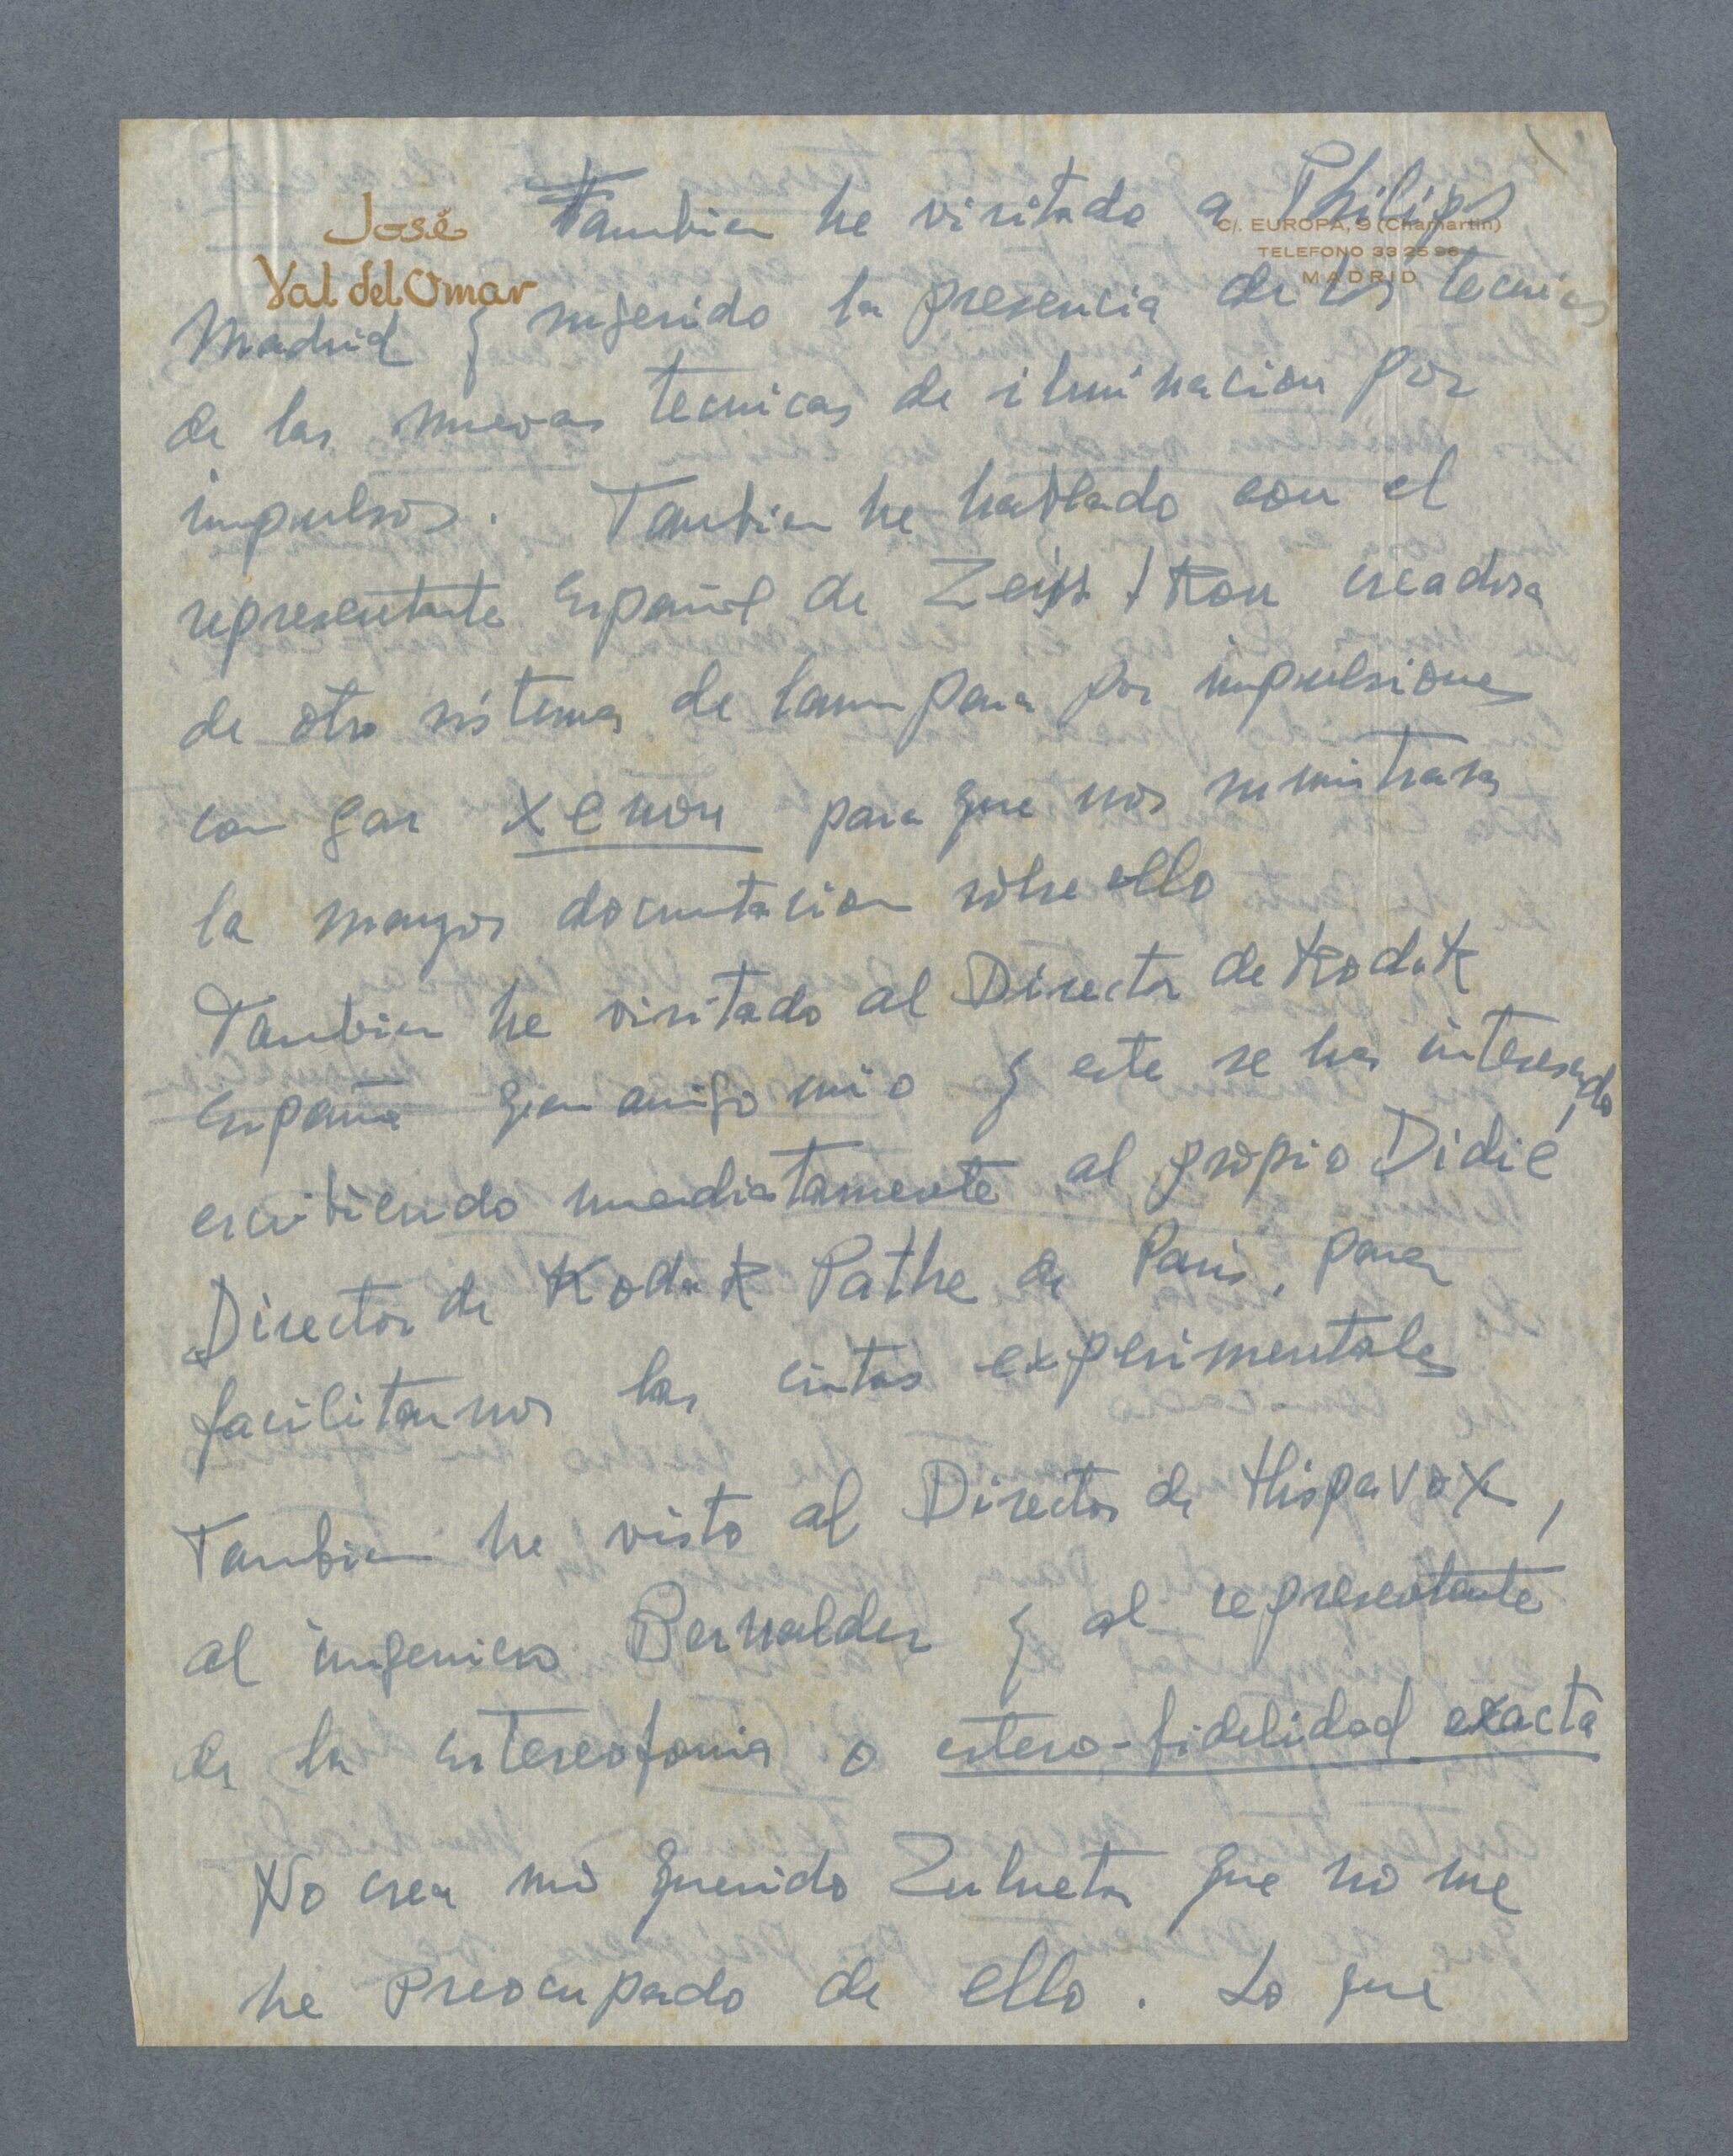 José
Val del Omar
C/. EUROPA, 9 (Chamartín)
TELEFONO 33 25 96
MADRID
Tambien he visitado a Philips
Madrid y sugerido la presencia de los tecnicos
de las nuevas tecnicas de iluminacion por
impulsos. Tambien he hablado con el
representante Español de Zeiss Ikon creadora
de otro sistema de lampara por impulsiones
con gas xenon para que nos suministrara
la mayor documtacion sobre ello
Tambien he visitado al Director de Kodak
España gran amigo mio y este se ha interesado
escribiendo inmediatamente al propio Didié
Director de Kodak Pathe de Paris, para
facilitarnos las cintas experimentales
Tambien he visto al Director de Hispavox,
al ingeniero Bernalder y al representante
de la estereofonia o estero-fidelidad exacta
No crea mi querido Zulueta que no me
he preocupado de ello. Lo que